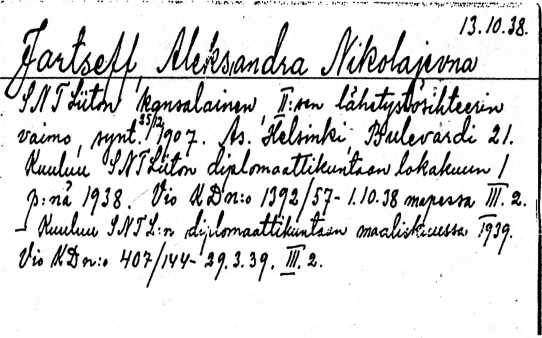 13.10.38.
Jartseff, Aleksandra Nikolajevna
SNTLiiton kansalainen, II:sen lähetystösihteerin
vaimo, synt. /1907. As. Helsinki, Bulevardi 21.
Kuuluu SNTLiiton diplomaattikuntaan lokakuun 1
p:nä 1938. Vio KD n:o 1392/57- 1.10.38 mapessa III. 2.
- Kuuluu SNTL:n diplomaattikuntaan maaliskuussa 1939.
Vio KD n:o 407/144- 29.3.39. III. 2.